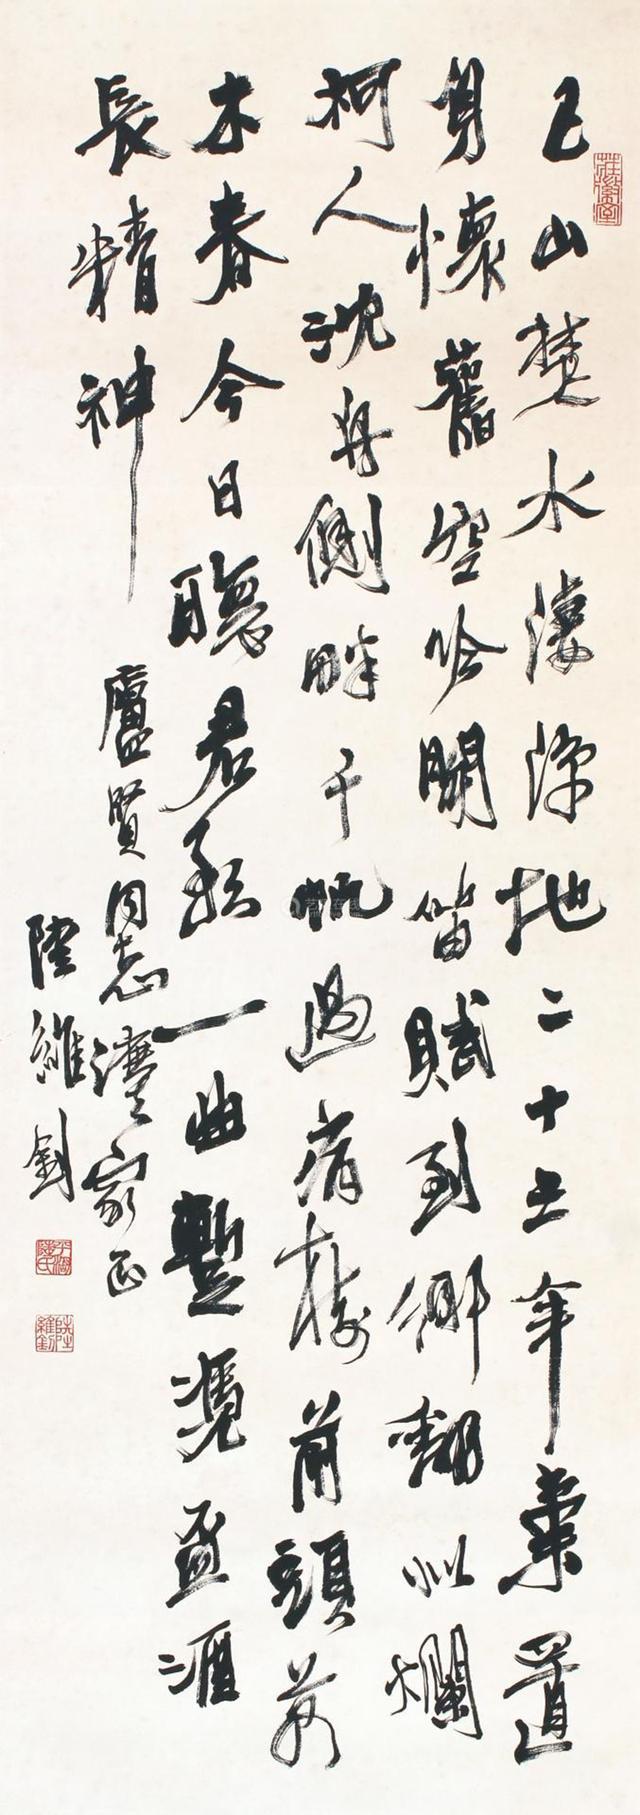 莊徽室
巴山楚水淒涼地二十三年棄置
身懷舊空吟聞笛賦到鄉翻似爛
柯人沈舟側畔千帆過病樹前頭萬
木春今日聽君歌一曲暫憑盃酒
長精神
盧賢同志灋家正
陸維釗
平湖陸氏
陸維釗